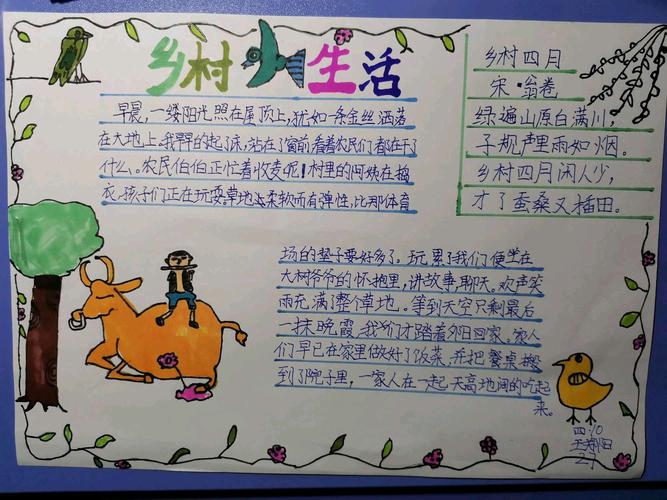 乡村生活
早晨,一缕阳光照在屋顶上,犹如一条金丝洒落
在大地上。我早早的起了床,站在了窗前看着农民们都在干了
什么。农民伯伯正忙着收麦呢!村里的阿姨在搞
衣,孩子们正在玩耍。草地上柔软而有弹性,比那体育
场的垫子要好多了。玩累了我们便坐在
大树爷爷的怀抱里,讲故事,聊天。欢声笑
雨充满了整个草地。等到天空只剩最后
一抹晚霞,我们才踏着夕阳回家。家人
们早已在家里做好了饭菜,并把餐桌搬
到了院子里,一家人在一起天高地阔的吃起
来。
乡村四月
宋·翁卷
绿遍山原白满川,
子规声里雨如烟。
乡村四月闲人少,
才了蚕桑又插田。
四.10